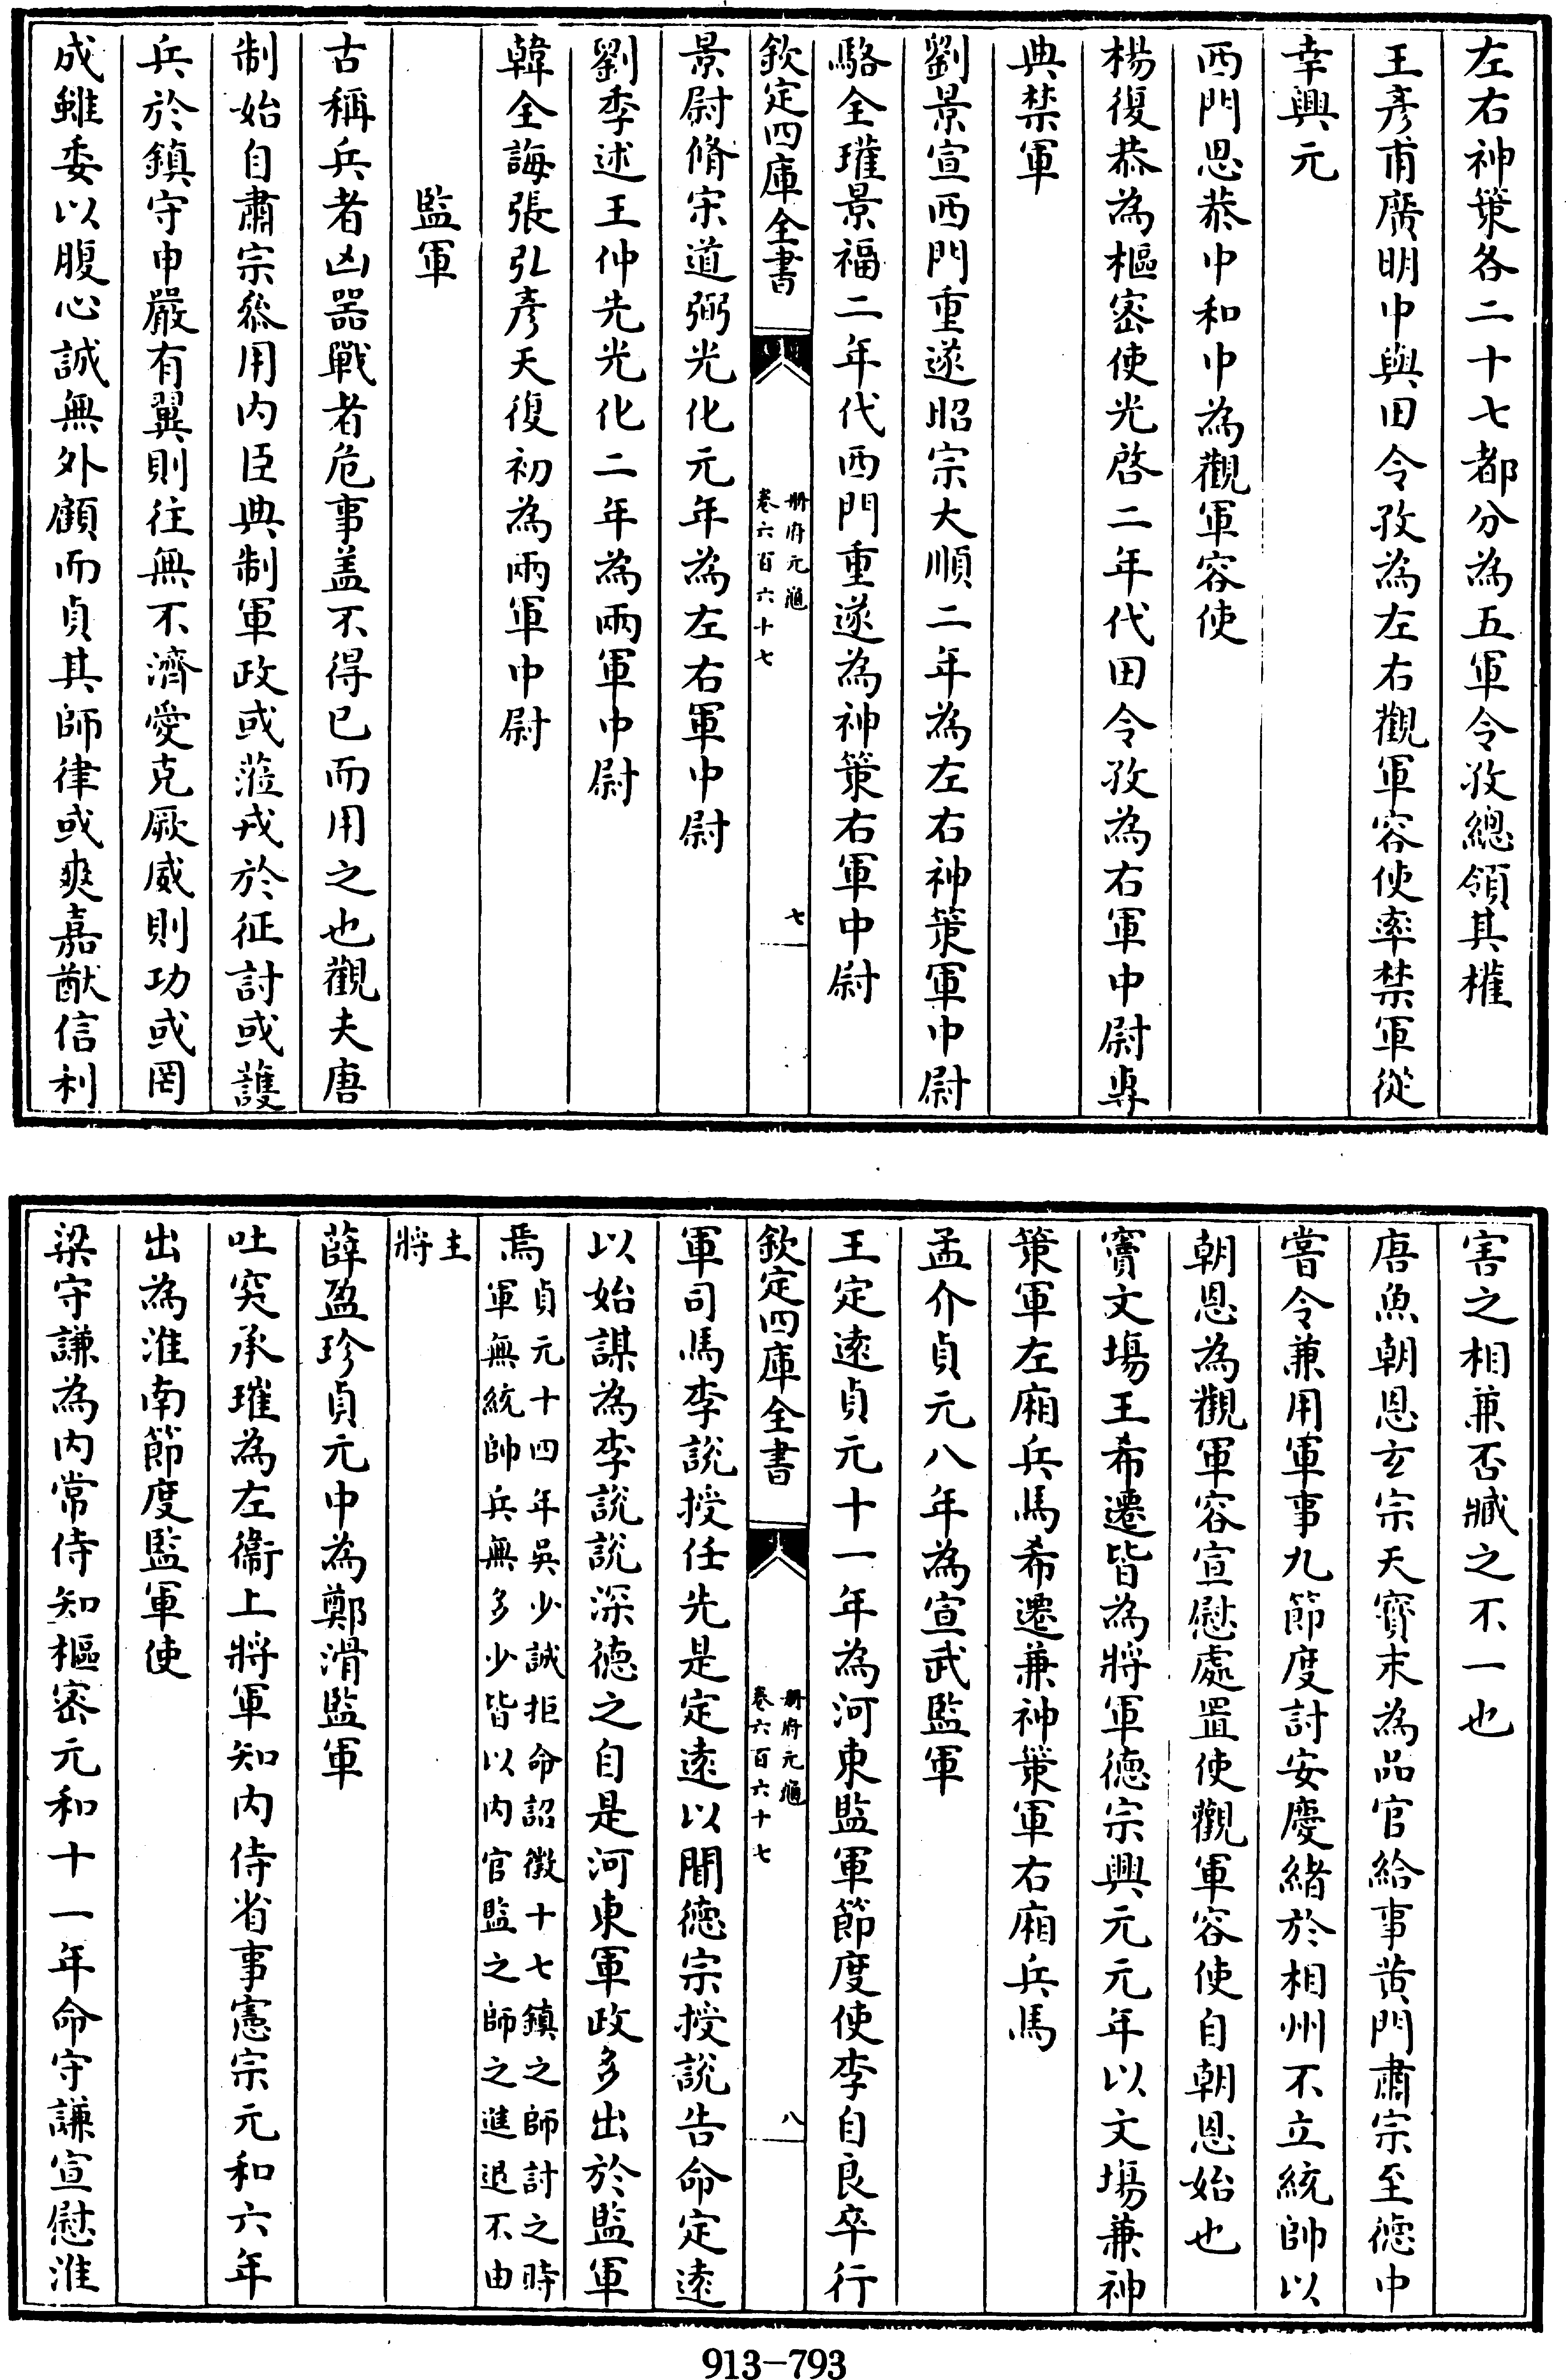 左右神䇿各二十七都分為五軍令孜總領其權
王彥甫廣明中與田令孜為左右觀軍容使率禁軍從
幸興元
西門思恭中和中為觀軍容使
楊復恭為樞密使光啓二年代田令孜為右軍中尉專
典禁軍
劉景宣西門重遂昭宗大順二年為左右神䇿軍中尉
駱全瓘景福二年代西門重遂為神䇿右軍中尉
欽定四庫全書
冊府元龜
卷六百六十七
七
景尉脩宋道弼光化元年為左右軍中尉
劉季述王仲先光化二年為兩軍中尉
韓全誨張弘彥天復初為兩軍中尉
監軍
古稱兵者凶噐戰者危事盖不得已而用之也觀夫唐
制始自肅宗叅用内臣典制軍政或蒞戎於征討或護
兵於鎮守申嚴有翼則往無不濟愛克厥威則功或罔
成雖委以腹心誠無外顧而貞其師律或爽嘉猷信利
害之相兼否臧之不一也
唐魚朝恩玄宗天寳末為品官給事黄門肅宗至徳中
嘗令兼用軍事九節度討安慶緒於相州不立統帥以
朝恩為觀軍容宣慰處置使觀軍容使自朝恩始也
竇文塲王希遷皆為將軍徳宗興元元年以文塲兼神
䇿軍左廂兵馬希遷兼神䇿軍右廂兵馬
孟介貞元八年為宣武監軍
王定逺貞元十一年為河東監軍節度使李自良卒行
欽定四庫全書
冊府元龜
卷六百六十七
八
軍司馬李說授任先是定逺以聞徳宗授說告命定逺
以始謀為李說說深徳之自是河東軍政多出於監軍
焉貞元十四年吳少誠拒命詔徵十七鎮之師討之時
軍無統帥兵無多少皆以内官監之師之進退不由
主
將
薛盈珍貞元中為鄭滑監軍
吐突承璀為左衞上將軍知内侍省事憲宗元和六年
出為淮南節度監軍使
梁守謙為内常侍知樞密元和十一年命守謙宣慰淮
913-793